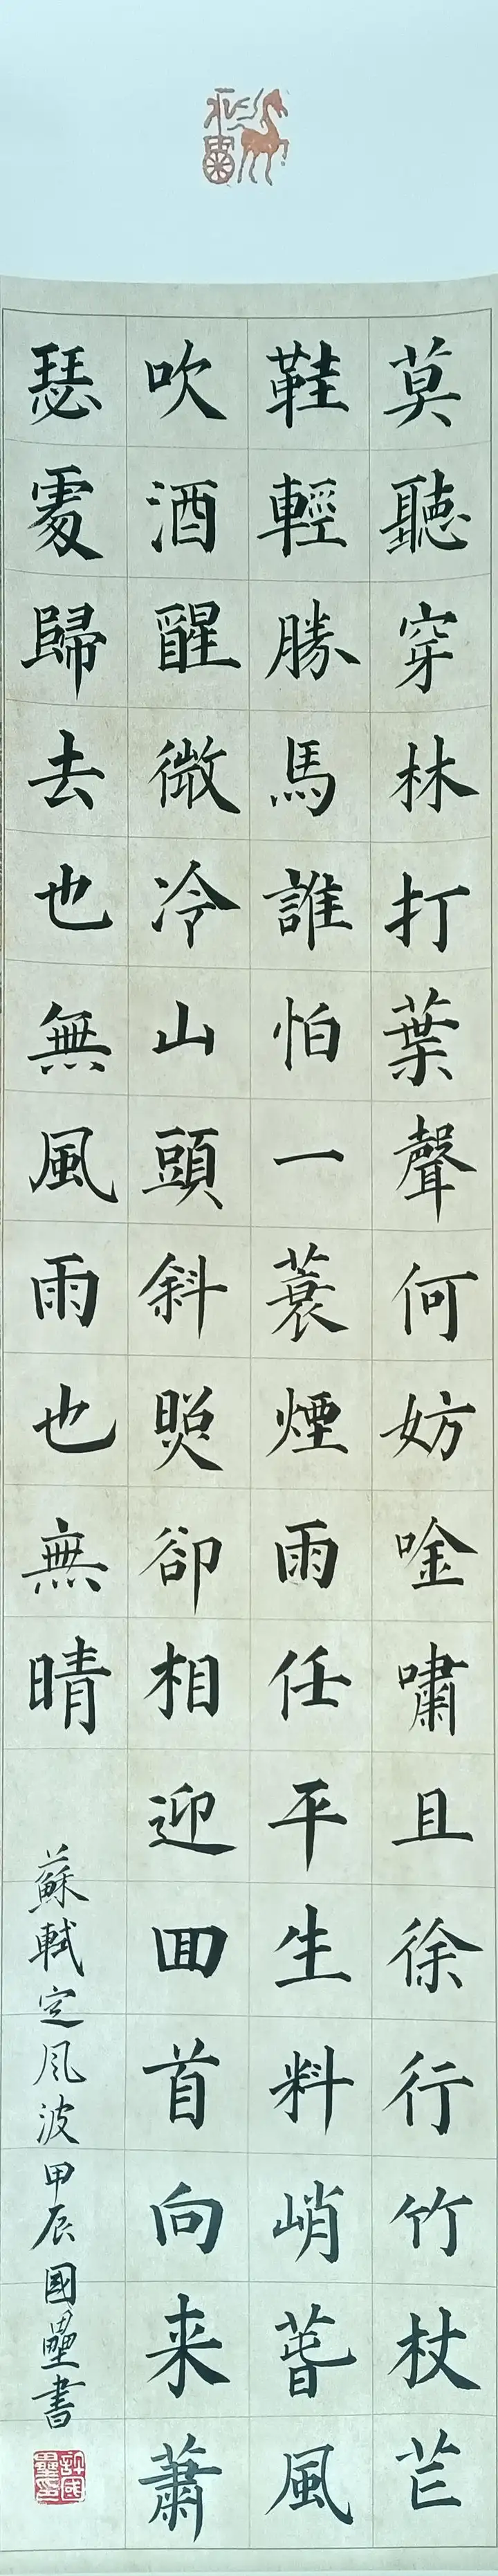 莫聽穿林打葉聲何妨唫嘯且徐行竹杖芒
鞋輕勝馬誰怕一蓑煙雨任平生料峭春風
吹酒醒微冷山頭斜照卻相迎回首向来蕭
瑟處歸去也無風雨也無晴
蘇軾定风波甲辰國壘書
許國壘印